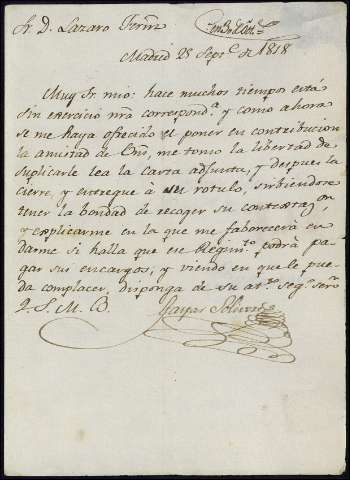 Sr. D. Lazaro Ferrn.
Madrid 28 Sepre. de 1818
Muy Sr. mio: hace muchos tiempos está
sin exercicio nra corresponda. y como ahora
se me haya ofrecido el poner en contribucion
la amistad de Vm, me tomo la libertad de
suplicarle lea la carta adjunta, y despues la
cierre, y entregue à su rotulo, sirbiendose
tener la bondad de recoger su contextazon,
y explicarme en la que me faborecerá en
darme si halla que ese Regimto. podrà pa
gar sus encargos; y viendo en que le pue
da complacer, disponga de su ato. sego. servo.
Q. S. M. B.
Gaspar